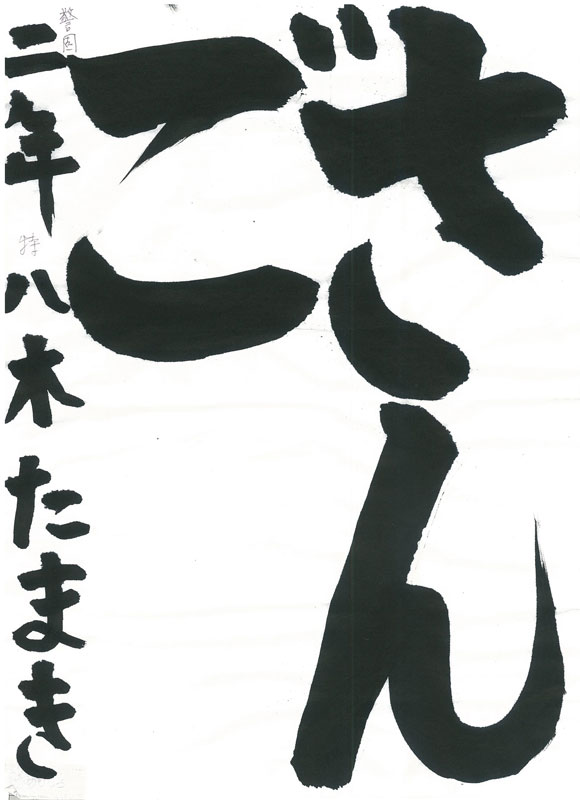 さん
ご
警固
二年 八木 たまき
特